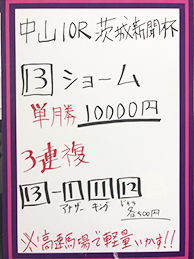 中山10R 茨城新聞杯
13 ショーム
単勝 10000円
3連複
13-1 11 12
キング
各500円
※高速馬場で軽量いかす!!